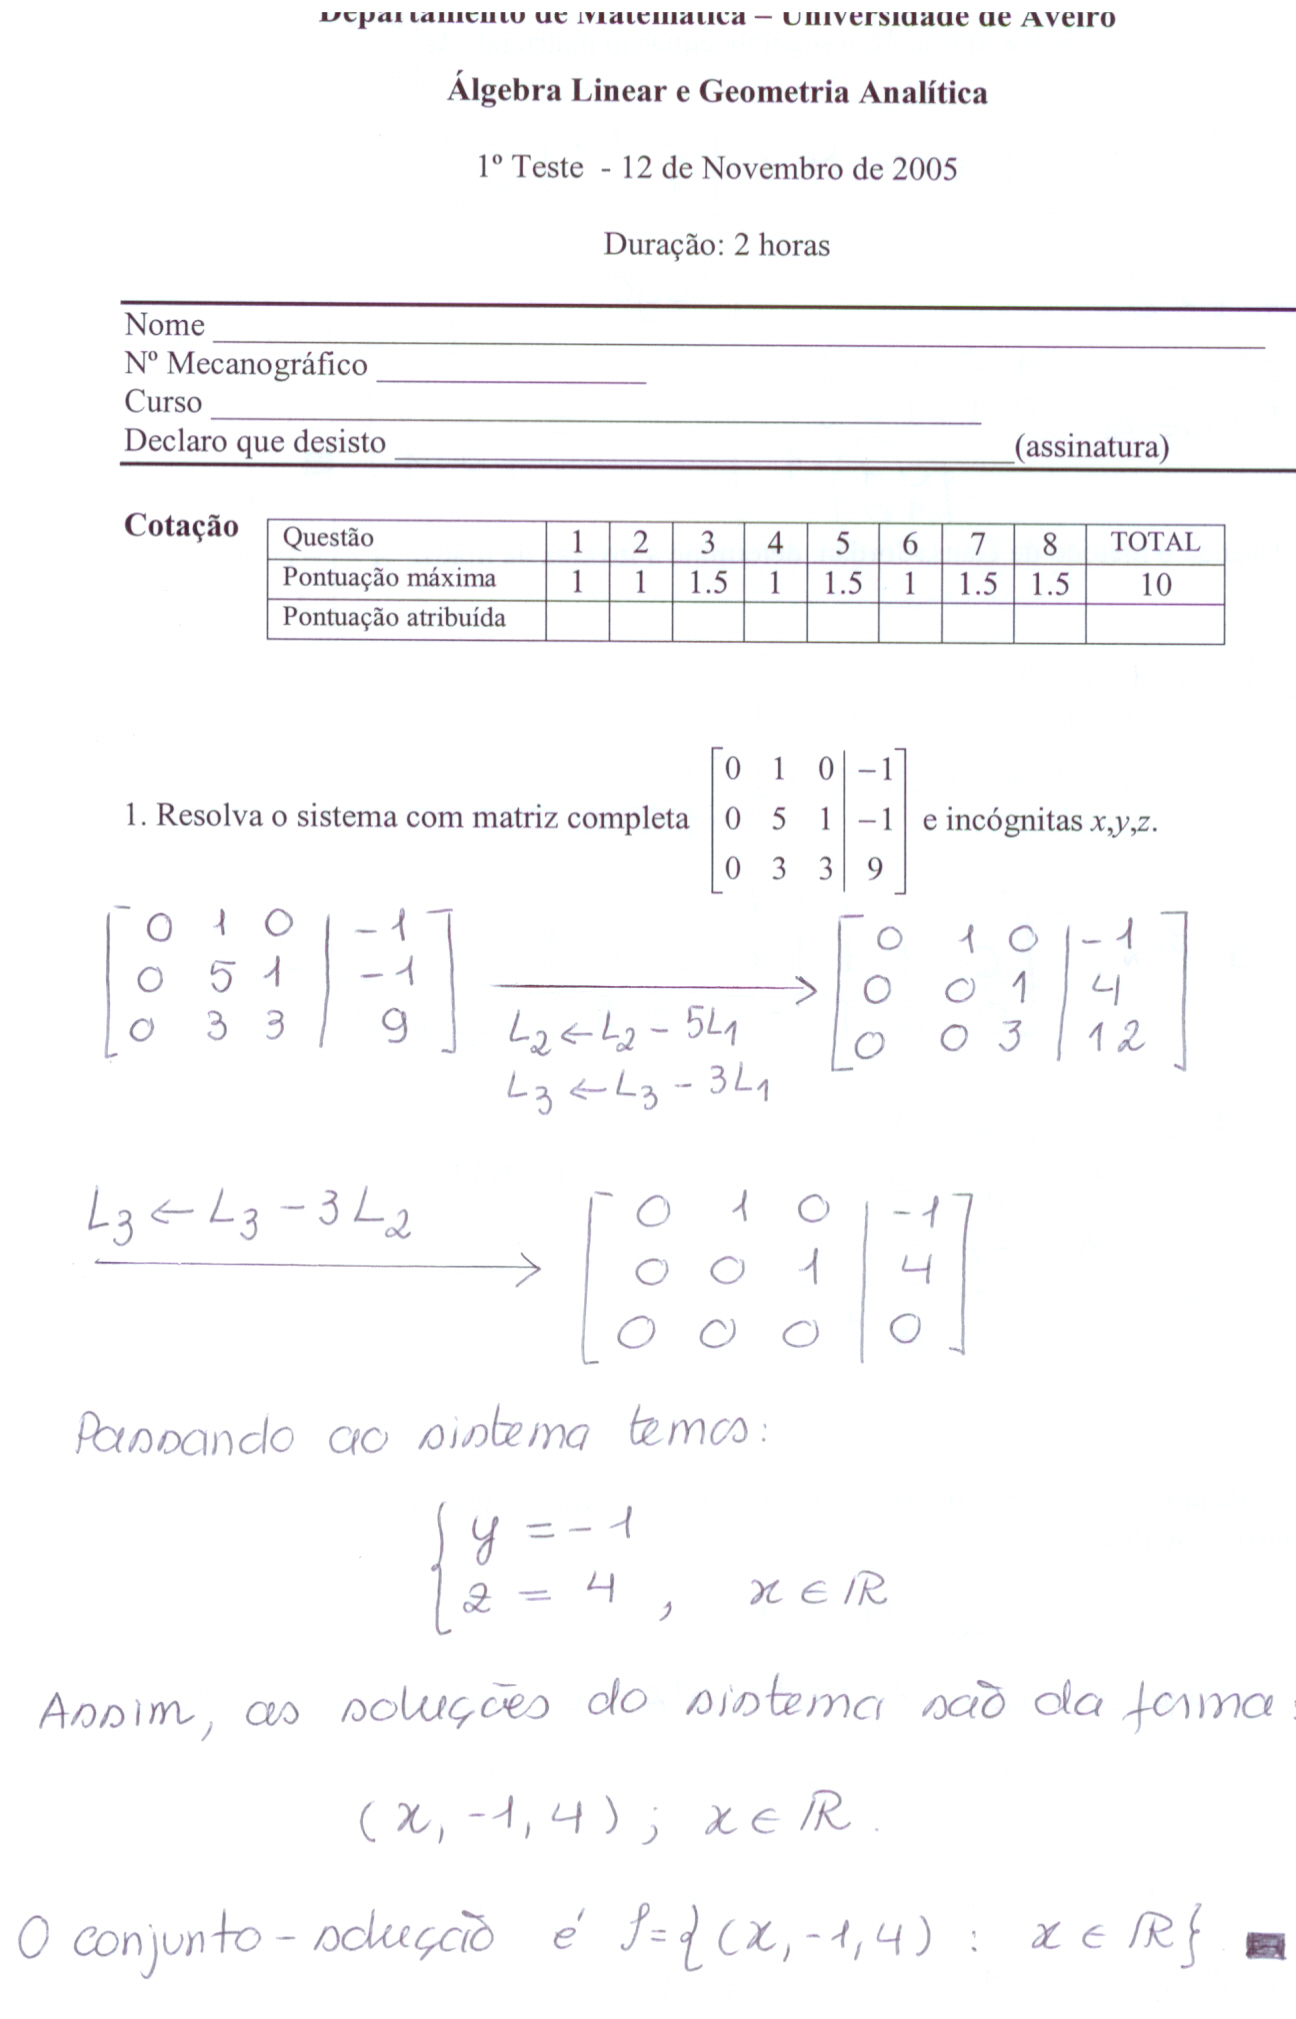 Departamento de Matemática – Universidade de Aveiro
Álgebra Linear e Geometria Analítica
1º Teste - 12 de Novembro de 2005
Duração: 2 horas
Nome
Nº Mecanográfico
Curso
Declaro que desisto (assinatura)
Cotação
Questão 1 2 3 4 5 6 7 8 TOTAL
Pontuação máxima 1 1 1.5 1 1.5 1 1.5 1.5 10
Pontuação atribuída
0 1 0 | −1
1. Resolva o sistema com matriz completa 0 5 1 | −1 e incógnitas x,y,z.
0 3 3 | 9
0 1 0 | -1
0 5 1 | -1
0 3 3 | 9
→
L2 ← L2 - 5L1
L3 ← L3 - 3L1
0 1 0 | -1
0 0 1 | 4
0 0 3 | 12
L3 ← L3 - 3L2
→
0 1 0 | -1
0 0 1 | 4
0 0 0 | 0
Passando ao sistema temos:
{ y = -1
z = 4 , x ∈ ℝ
Assim, as soluções do sistema são da forma:
(x, -1, 4) ; x ∈ ℝ.
O conjunto-solução é S={(x, -1, 4) : x ∈ ℝ}